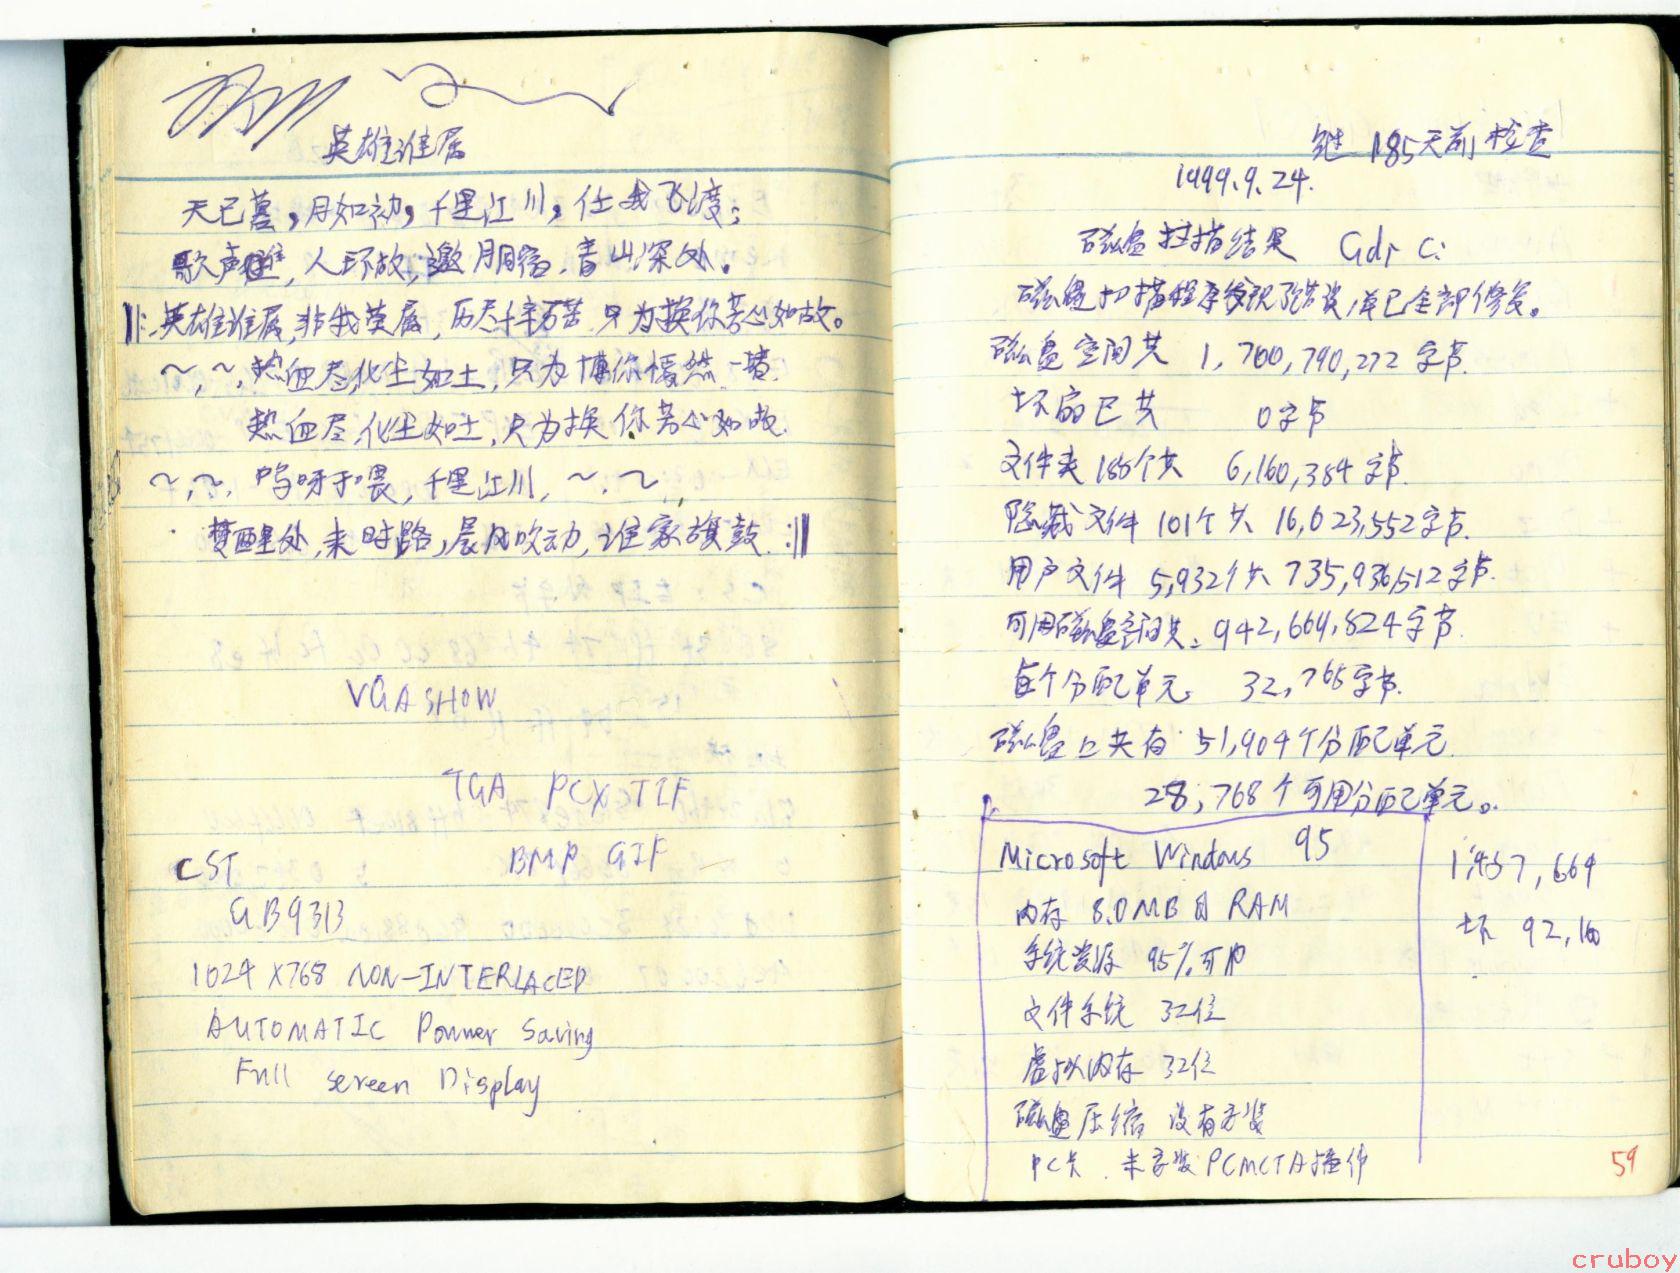 英雄谁属
天已暮，月如初，千里江川，任我飞渡；
歌声难，人环故，邀月同宿，青山深处。
‖:英雄谁属，非我莫属，历尽千辛万苦，只为换你芳心如故。
～，～，热血尽化尘如土，只为博你嫣然一
热血尽化尘如土，只为换你芳心如故.
～，～，呜呀于喂，千里江川，～，～
梦醒处，来时路，晨风吹动，谁家旗鼓.:‖
VGA SHOW
TGA PCX TIF
BMP GIF
CST
GB9313
1024X768 NON-INTERLACED
AUTOMATIC Power Saving
Full screen Display
继 185天前检查
1999.9.24.
磁盘扫描结果 C:
磁盘扫描程序发现了错误，单已全部修复。
磁盘空间共 1,700,790,272字节.
坏扇已共 0字节
文件夹188个共 6,160,384字节.
隐藏文件 101个共 16,023,552字节.
用户文件 5,932个共 735,936,512字节.
可用磁盘空间共: 942,669,824字节.
每个分配单元 32,768字节.
磁盘上共有 51,904个分配单元.
28,768个可用分配单元。
Microsoft Windows 95
内存 8.0MB的 RAM
系统资源 95%可用
文件系统 32位
虚拟内存 32位
磁盘压缩 没有安装
PC卡 未安装PCMCIA插件
坏 92,160
59
cruboy